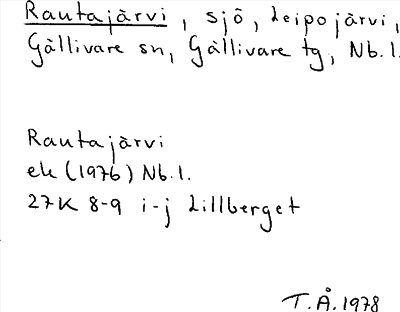 Rautajärvi, sjö, Leipojärvi,
Gällivare sn, Gällivare tg, Nb.l.
Rautajärvi
ek (1976) Nb.l.
27K 8-9 i-j Lillberget
T.Å. 1978